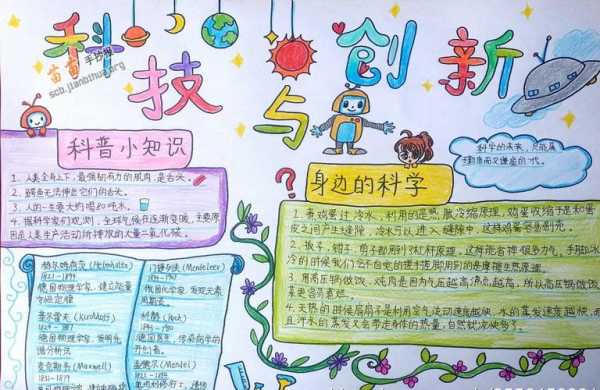 科技与创新
苗苗手抄报
scb.jianbihua.org
科普小知识
1. 人类全身上下,最强韧有力的肌肉,是舌头。
2. 鳄鱼无法伸出它们的舌头。
3. 人的一生要大约喝80吨水。
4. 据科学家们观测,全球气候在逐渐变暖,主要原
因是人类生产活动所排放的大量二氧化碳。
赫尔姆霍茨 (Helmholtz)
1821-1894
德国物理学家,建立能量
守恒定律
基尔霍夫 (Kirchhoff)
1824-1887
德国物理学家,发明光
谱分析法
麦克斯韦 (Maxwell)
1831-1879
门捷列夫
俄国化学家,发现元素
周期表。
科赫 (Koch)
德国医生,传染病学的
开创者。
孟德尔 (Mendel)
科学的未来,只能属
于勤奋而又谦虚的一代。
?
身边的科学
1. 煮鸡蛋过冷水,利用的是热胀冷缩原理,鸡蛋收缩于是和蛋
皮之间产生缝隙,冷水可以进入缝隙中,这样鸡蛋容易剥壳。
2. 扳子、钳子、剪子都用到了杠杆原理,这样能省掉很多力气,手脚冰
冷的时候我们会不自觉的搓手搓脚用到的是摩擦生热原理。
3. 用高压锅做饭、炖肉是因为气压越高沸点越高,所以高压锅做饭
菜更容易熟。
4. 天热的时候扇扇子是利用空气流动速度越快,水的蒸发速度越快,而
且汗水的蒸发又会带走身体的热量,自然就凉快多了。